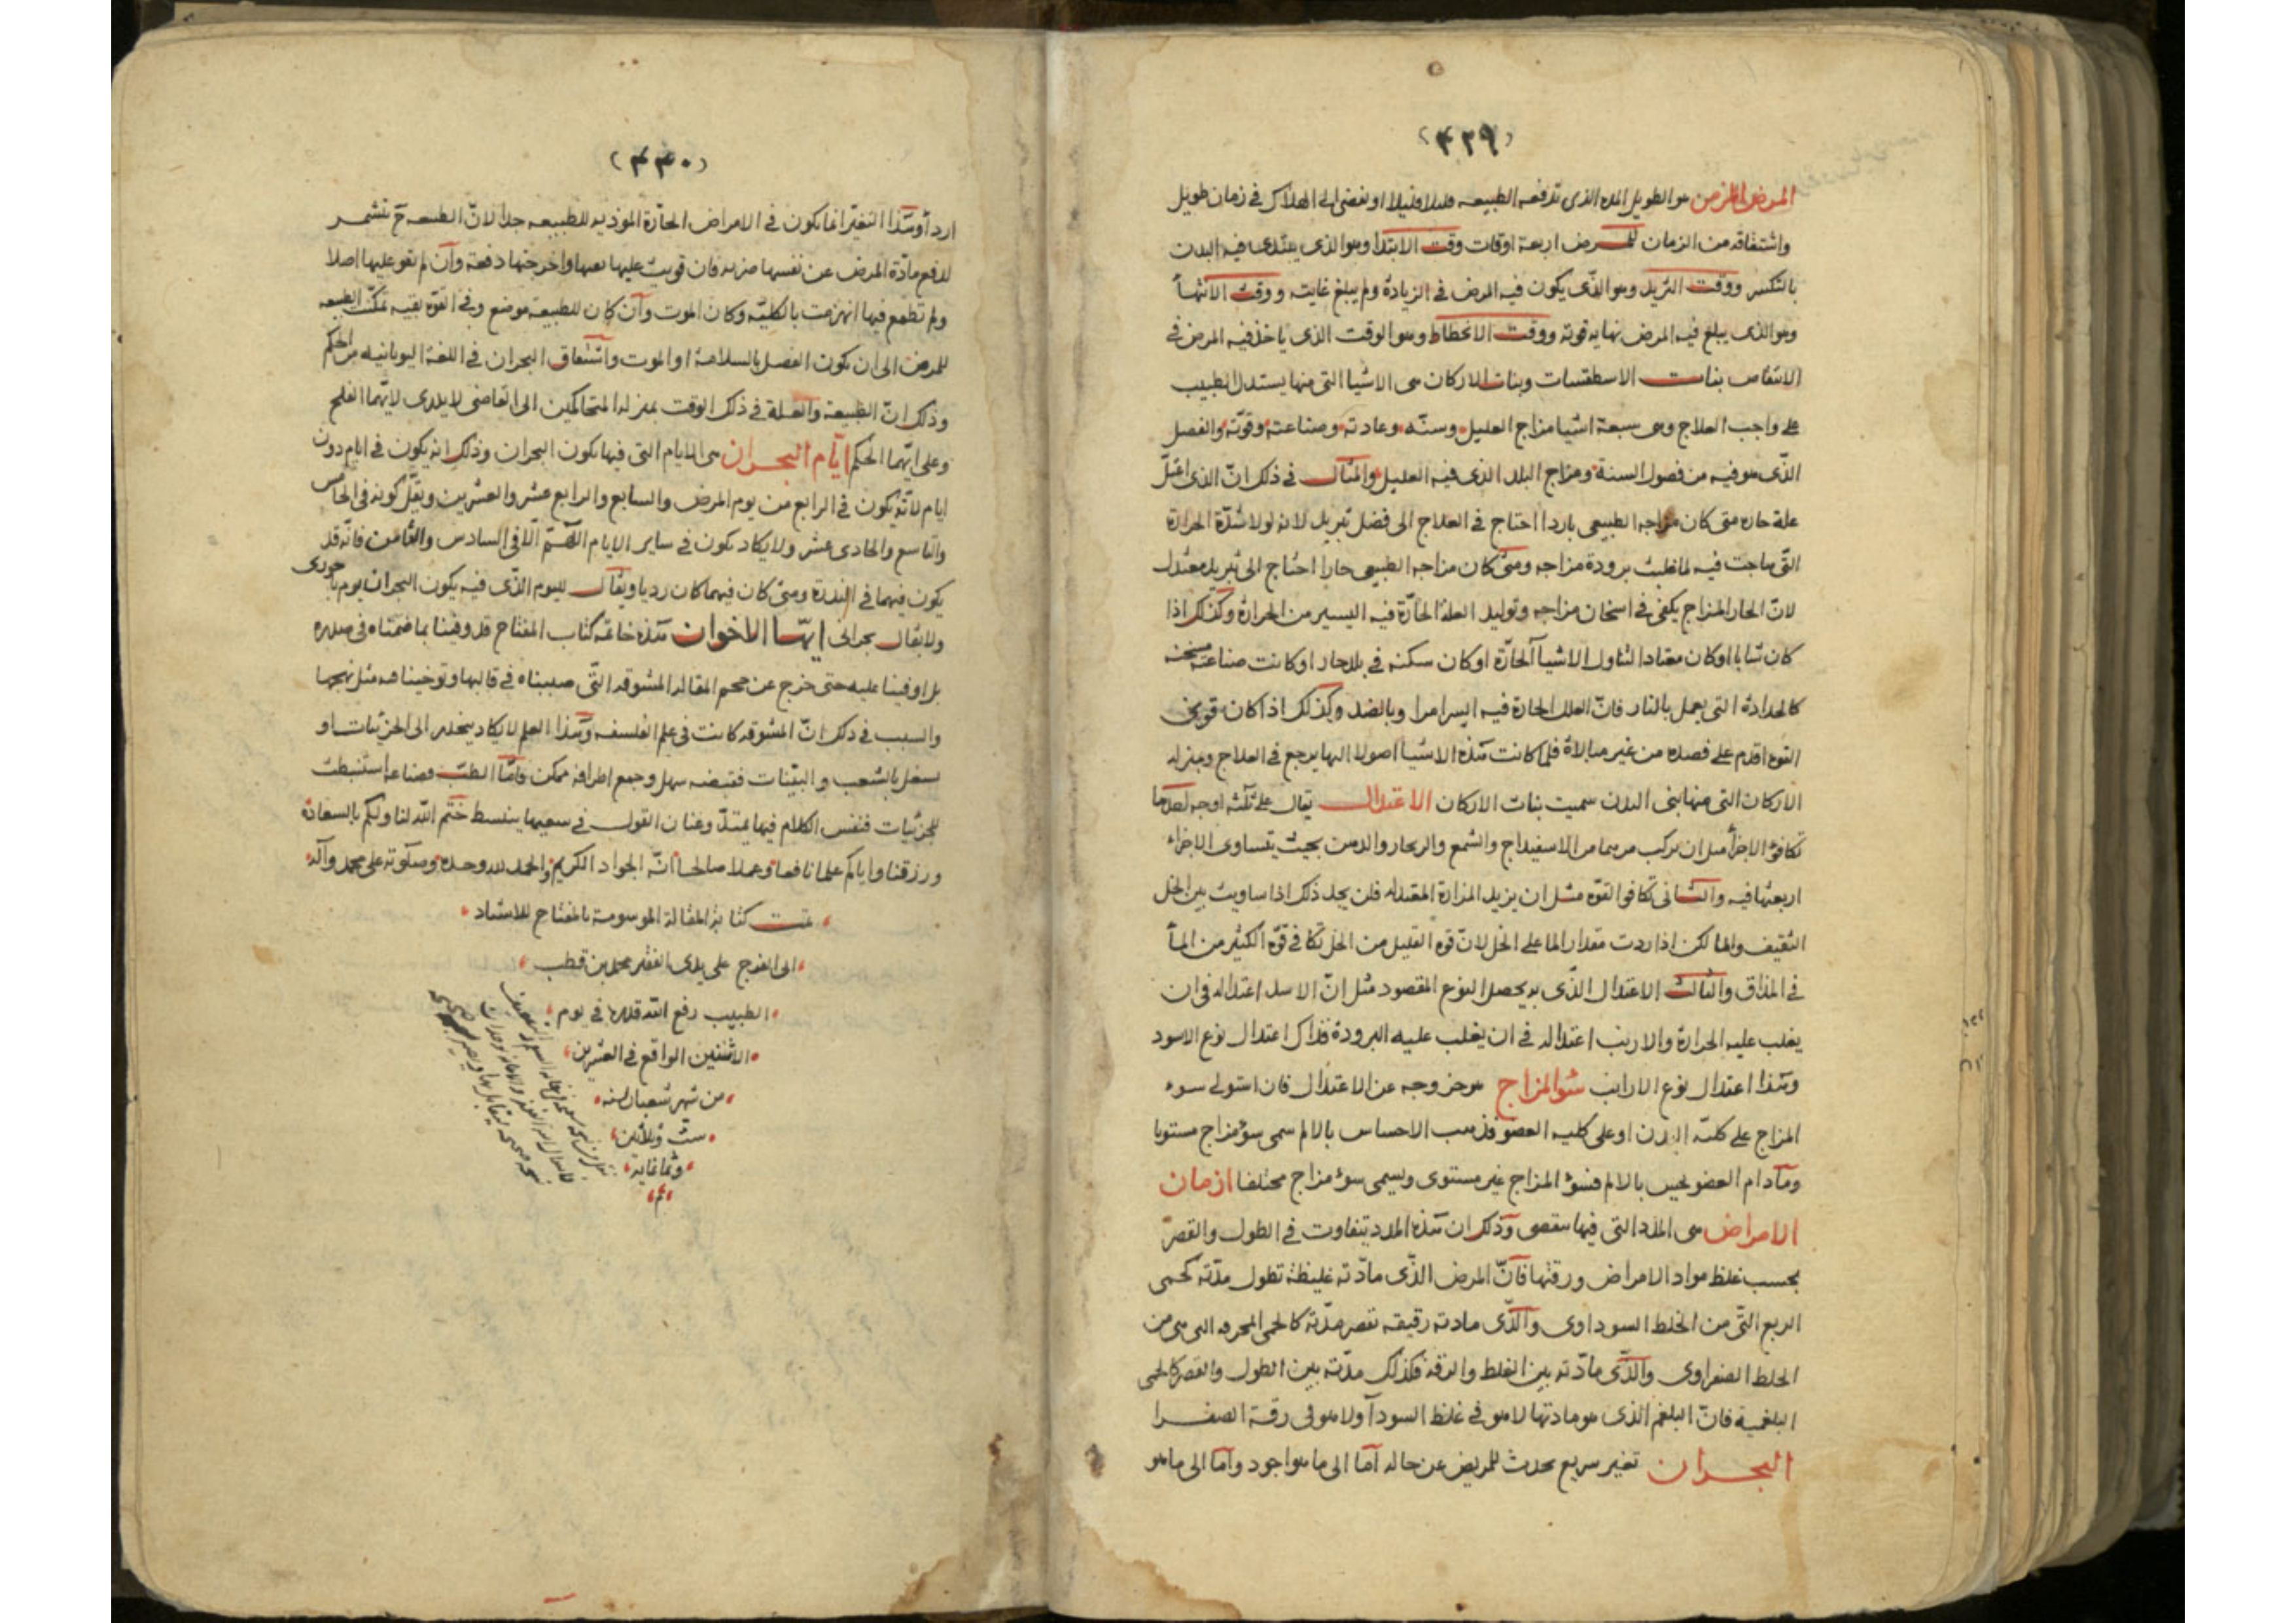 (٤٣٩)
المرض المزمن هو الطويل المده الذى تدفعه الطبيعه قليلا قليلا او تفضى الى الهلاك فى زمان طويل
واشتقاقه من الزمان للمرض اربعة اوقات وقت الابتدا وهو الذى يبتدى فيه البدن
بالتكسر ووقت التزيد وهو الذى يكون فيه المرض فى الزيادة ولم يبلغ غايته ووقت الانتهأ
وهو الذى يبلغ فيه المرض نهاية قوته ووقت الانحطاط وهو الوقت الذى ياخذ فيه المرض فى
الانتقاص بنات الاسطقسات وبنات الاركان هى الاشيا التى منها يستدل الطبيب
على واجب العلاج وهى سبعة اشيا مزاج العليل وسنّه وعادته وصناعته وقوّته والفصل
الذّى هو فيه من فصول السنة ومزاج البلد الذى فيه العليل والمثال فى ذلك انّ الذى اعتلّ
علة حاره متى كان مزاجه الطبيعى باردا احتاج فى العلاج الى فضل تبريد لانه لولا شدّة الحرارة
التّى هاجت فيه لما غلبت برودة مزاجه ومتى كان مزاجه الطبيعى حارا احتاج الى تبريد معتدل
لانّ الحار المزاج يكفى فى اسخان مزاجه وتوليد العلة الحارّة فيه اليسير من الحرارة وكذلك اذا
كان شابا او كان معتادا لتناول الاشيا الحارّة او كان سكنه فى بلاد حار او كانت صناعته مسخنه
كالحدادة التى يعمل بالنار فانّ العلل الحارة فيه ايسر امرا وبالضد وكذلك اذا كان قوى
القوه اقدم على فصده من غير مبالاة فلما كانت هذه الاشيا اصولا اليها يرجع فى العلاج وبمنزله
الاركان التى منها بنى البدن سميت بنات الاركان الاعتدال يقال على ثلثه اوجه احدها
تكافؤ الاجزأ مثل ان يركب مرهما من الاسفيداج والشمع والزنجار والدهن بحيث يتساوى الاجزاء
اربعتها فيه والثانى تكافو القوه مثل ان يزيد المزازة المعتدله فلن يجد ذلك اذا ساويت بين الخل
الثقيف والما لكن اذا زدت مقدار الما على الخل لانّ قوه القليل من الخل تكافى قوّه الكثير من المأ
فى المذاق والثالث الاعتدال الذّى به يحصل النوع المقصود مثل انّ الاسد اعتداله فى ان
يغلب عليه الحرارة والارنب اعتداله فى ان يغلب عليه البرودة فذاك اعتدال نوع الاسود
وهذا اعتدال نوع الارانب سؤ المزاج هو خروجه عن الاعتدال فان استولى سوء
المزاج على كلية البدن او على كلية العضو فذهب الاحساس بالالم سمى سؤ مزاج مستويا
ومادام العضو يحس بالالم فسؤ المزاج غير مستوى ويسمى سوء مزاج مختلفا ازمان
الامراض هى المدد التى فيها تنقضى وذلك ان هذه المدد يتفاوت فى الطول والقصر
بحسب غلظ مواد الامراض ورقتها فانّ المرض الذّى مادّته غليظة تطول مدّته كحمى
الربع التّى من الخلط السوداوى والذّى مادته رقيقه تقصر مدّته كالحمى المحرقه التى هى من
الخلط الصفراوى والذّى مادّته بين الغلظ والرقه فكذلك مدّته بين الطول والقصر كالحمى
البلغمية فانّ البلغم الذى هو مادتها لا هو فى غلظ السودآ ولا هو فى رقة الصفرا
البحران تغير سريع يحدث للمريض عن حاله اما الى ما هو اجود واما الى ما هو
(٤٤٠)
اردأ وهذا التغيّر انما يكون فى الامراض الحارّة الموذيه للطبيعه جدا لانّ الطبيعه ح تتشمر
لدفع مادّة المرض عن نفسها فان قويت عليها واخرجتها دفعة وان لم تقو عليها اصلا
ولم تطمع فيها انهزمت بالكليّه وكان الموت وان كان للطبيعة موضع وفى القوّه بقيه تمكّنت الطبيعه
للمرض الى ان يكون الفصل بالسلامة او الموت واشتقاق البحران فى اللغة اليونانيه من الحكم
وذلك انّ الطبيعة والعلة فى ذلك الوقت بمنزله المتحاكمين الى القاضى لا يدرى لايّهما الفلج
وعلى ايّهما الحكم ايّام البحران هى الايام التى فيها يكون البحران وذلك انه يكون فى ايام دون
ايام لانّه يكون فى الرابع من يوم المرض والسابع والرابع عشر والعشرين ويقلّ كونه فى الخامس
والتاسع والحادى عشر ولا يكاد يكون فى ساير الايام الا فى السادس والثامن فانّه قد
يكون فيهما فى الندرة ومتى كان فيهما كان رديا ويقال لليوم الذّى فيه يكون البحران يوم باحورى
ولا يقال بحرانى ايهّا الاخوان هذه خاتمة كتاب المفتاح قد وفينا بما ضمناه فى صدره
بل اوفينا عليه حتى خرج عن حجم المقاله المشوقه التّى صببناه فى قالبها وتوخيناهه مثل نهجها
والسبب فى ذلك انّ المشوقه كانت فى علم الفلسفه وهذا العلم لا يكاد ينحدر الى الجزئيات او
بالشعب والبيّنات فقبضه سهل وجمع اطرافه ممكن فامّا الطبّ فصناعة استنبطت
للجزئيات فنفس الكلام فيها يمتدّ وعنان القول فى سعيها ينبسط ختم الله لنا ولكم بالسعادة
ورزقنا واياكم علما نافعا وعملا صالحا انّه الجواد الكريم والحمد لله وحده وصلوته على محمد وآله
تمت كتابة المقالة الموسومة بالمفتاح للاستاد
الى الفرج على يدى الفقير محمد بن قطب
الطبيب رفع الله قدرها فى يوم
الاثنين الواقع فى العشرين
من شهر شعبان لسنه
ست وثلاثين
وثمانماية
م